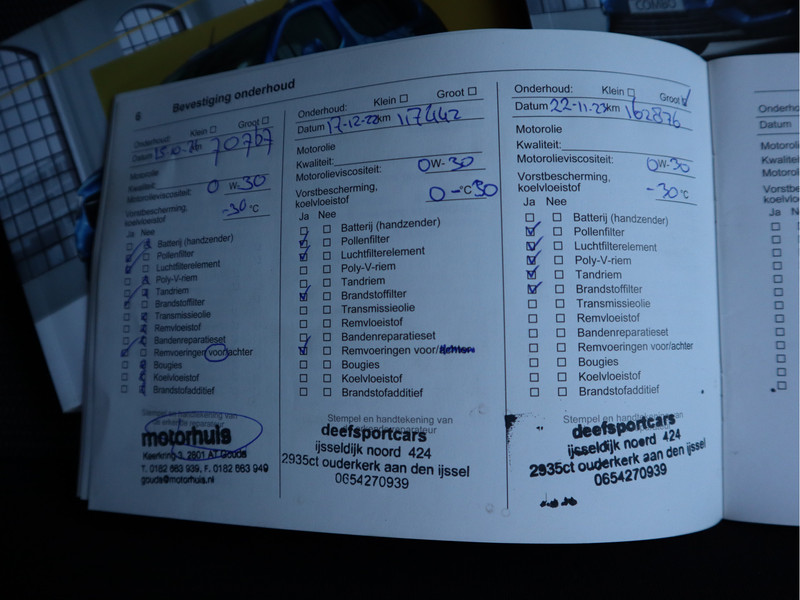 COMBO
6 Bevestiging onderhoud
Onderhoud: Klein Groot
Datum km 70767
Motorolie
Kwaliteit:
Motorolieviscositeit: 0 W-30
Vorstbescherming,
koelvloeistof -30 °C
Ja Nee
Batterij (handzender)
Pollenfilter
Luchtfilterelement
Poly-V-riem
Tandriem
Brandstoffilter
Transmissieolie
Remvloeistof
Bandenreparatieset
Remvoeringen voor/achter
Bougies
Koelvloeistof
Brandstofadditief
Stempel en handtekening van
de erkende reparateur
motorhuis
Keerkring 3, 2801 AT Gouda
T. 0182 563 939, F. 0182 563 949
gouda@motorhuis.nl
Onderhoud: Klein Groot
Datum 17-12-22 km 117442
Motorolie
Kwaliteit:
Motorolieviscositeit: 0W-30
Vorstbescherming,
koelvloeistof 0 -°C 30
Ja Nee
Batterij (handzender)
Pollenfilter
Luchtfilterelement
Poly-V-riem
Tandriem
Brandstoffilter
Transmissieolie
Remvloeistof
Bandenreparatieset
Remvoeringen voor/
Bougies
Koelvloeistof
Brandstofadditief
Stempel en handtekening van
reparateur
deefsportcars
ijsseldijk noord 424
2935ct ouderkerk aan den ijssel
0654270939
Onderhoud: Klein Groot
Datum 22-11-23 km 162876
Motorolie
Kwaliteit:
Motorolieviscositeit: 0W-30
Vorstbescherming,
koelvloeistof -30 °C
Ja Nee
Batterij (handzender)
Pollenfilter
Luchtfilterelement
Poly-V-riem
Tandriem
Brandstoffilter
Transmissieolie
Remvloeistof
Bandenreparatieset
Remvoeringen voor/achter
Bougies
Koelvloeistof
Brandstofadditief
Stempel en handtekening van
deefsportcars
ijsseldijk noord 424
2935ct ouderkerk aan den ijssel
0654270939
Onderho
Datum
Motorol
Kwalitei
Motorol
Vorstbe
koelvlo
Ja N